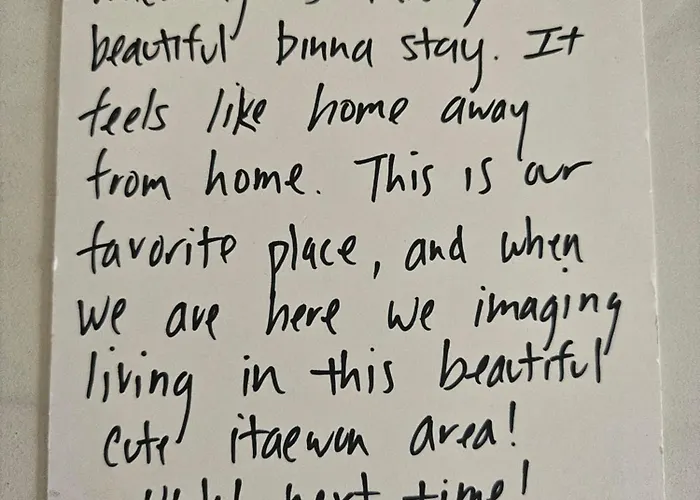 beautiful binna stay. It
feels like home away
from home. This is our
favorite place, and when
we are here we imaging
living in this beautiful
cute itaewon area!
next time!